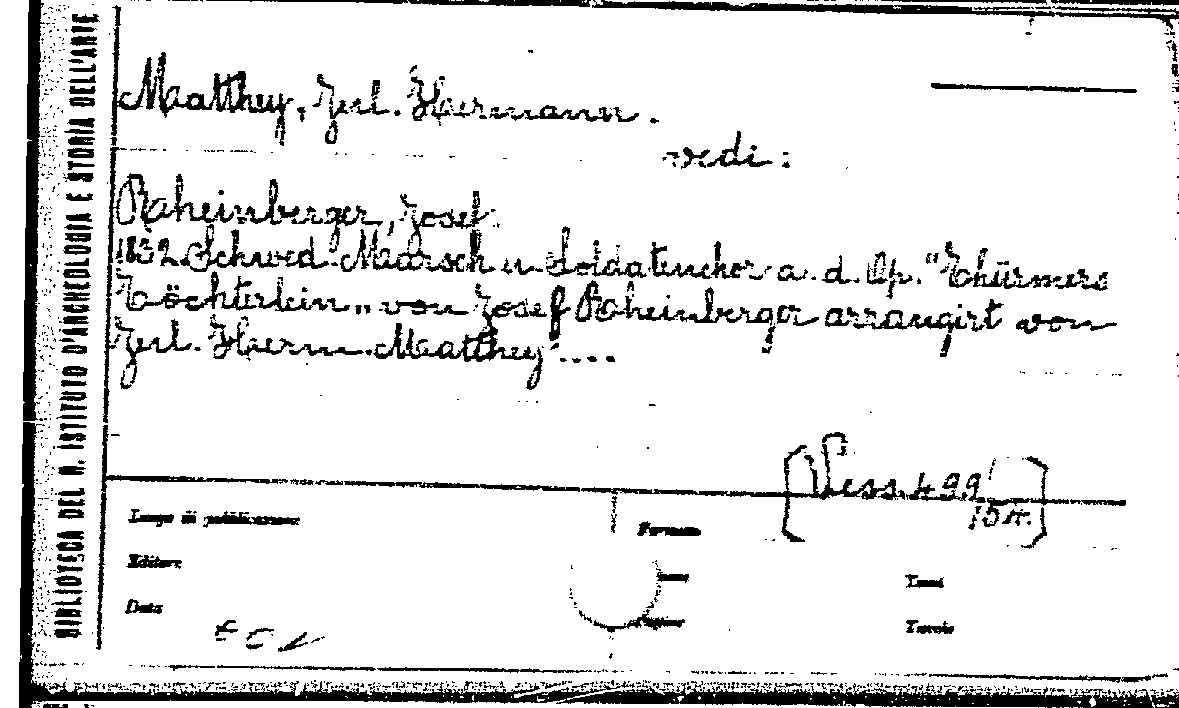 BIBLIOTECA DEL R. ISTITUTO D'ARCHEOLOGIA E STORIA DELL'ARTE
Matthey, Jul. Hermann.
vedi:
Rheinberger, Josef.
Schwed. Marsch u. Soldatenchor a. d. Op. "Thürmers
Töchterlein„ von Josef Rheinberger arrangirt von
Jul. Herm. Matthey....
[Vess. 499
154.]
Luogo di pubblicazione
Formato
Editore
Tomi
Data
Pagine
Tavole